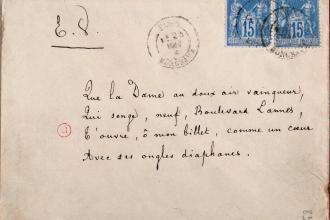 E. V.
PARIS
15
15
MONCEAUX
Que la Dame au doux air vainqueur,
Qui songe, neuf, Boulevard Lannes,
T'ouvre, ô mon billet, comme un cœur
Avec ses ongles diaphanes.